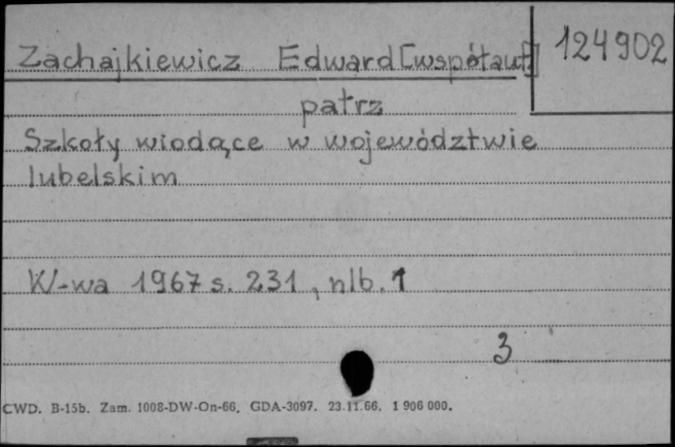 Zachajkiewicz Edward [współaut] 124902
patrz
Szkoły wiodące w województwie
lubelskim
W-wa 1967 s. 231, nlb. 1
3
CWD. B-15b. Zam. 1008-DW-On-66. GDA-3097. 23.11.66. 1 906 000.